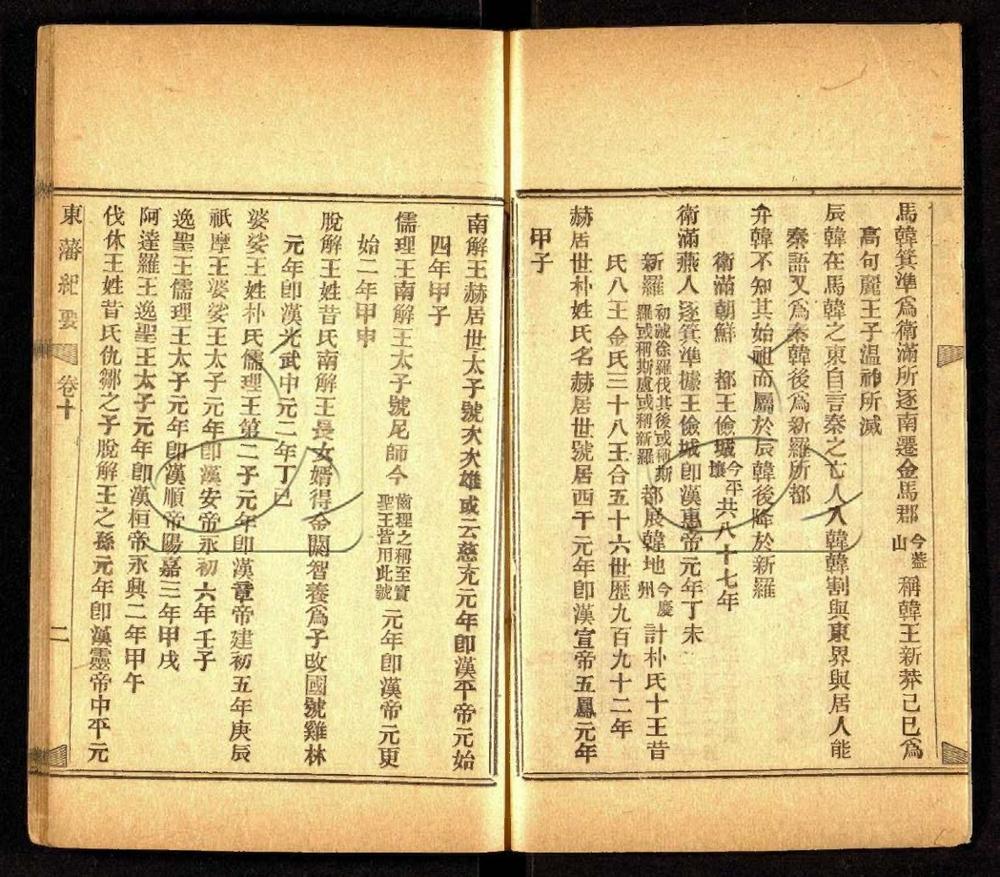 馬韓箕準爲衛滿所逐南遷金馬郡今益山稱韓王新莽己巳爲
高句麗王子温祚所滅
辰韓在馬韓之東自言秦之亡人入韓韓割與東界與居人能
秦語又爲秦韓後爲新羅所都
弁韓不知其始祖而屬於辰韓後降於新羅
衛滿朝鮮 都王儉城今平壤共八十七年
衛滿燕人逐箕準據王儉城卽漢惠帝元年丁未
新羅初諴徐羅伐其後或稱斯羅或稱斯盧或稱新羅都辰韓地今慶州計朴氏十王昔
氏八王金氏三十八王合五十六世歷九百九十二年
赫居世朴姓氏名赫居世號居西干元年卽漢宣帝五鳳元年
甲子
南解王赫居世太子號次次雄或云慈充元年卽漢平帝元始
四年甲子
儒理王南解王太子號尼師今齒理之稱至實聖王皆用此號元年卽漢帝元更
始二年甲申
脫解王姓昔氏南解王長女婿得金閼智養爲子改國號雞林
元年卽漢光武中元二年丁巳
婆娑王姓朴氏儒理王第二子元年卽漢章帝建初五年庚辰
祇摩王婆娑王太子元年卽漢安帝永初六年壬子
逸聖王儒理王太子元年卽漢順帝陽嘉三年甲戌
阿達羅王逸聖王太子元年卽漢桓帝永興二年甲午
伐休王姓昔氏仇鄒之子脫解王之孫元年卽漢靈帝中平元
東藩紀要 卷十 二